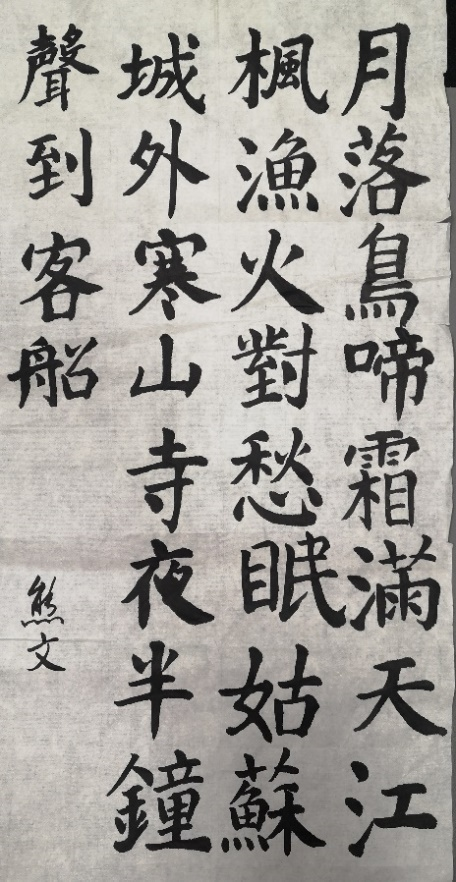 月落鳥啼霜滿天江
楓漁火對愁眠姑蘇
城外寒山寺夜半鐘
聲到客船
熊文